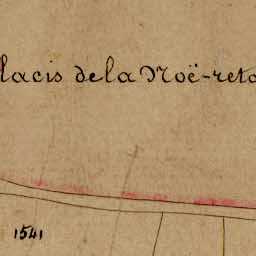 lacis de la Noë-reto
1541